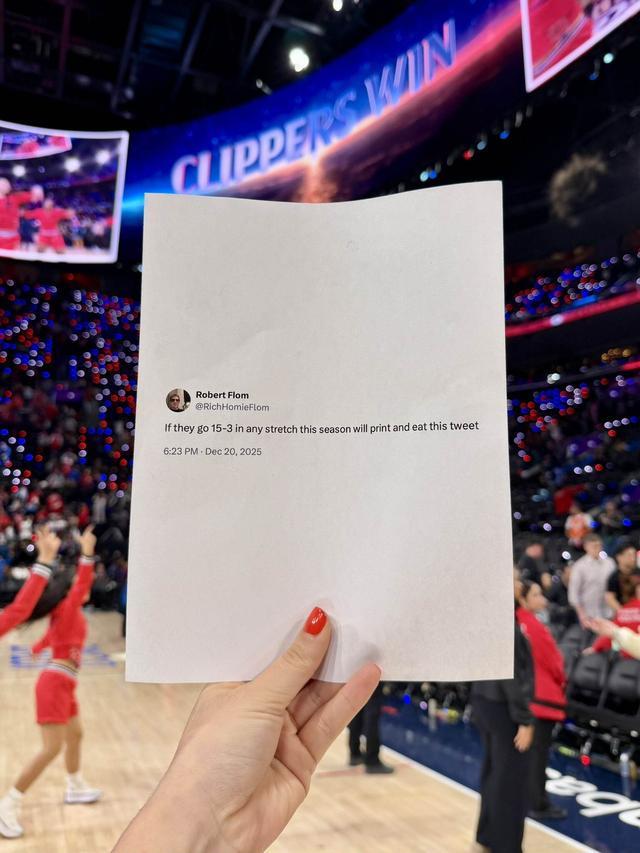 CLIPPERS WIN
Robert Flom
@RichHomieFlom
If they go 15-3 in any stretch this season will print and eat this tweet
6:23 PM · Dec 20, 2025